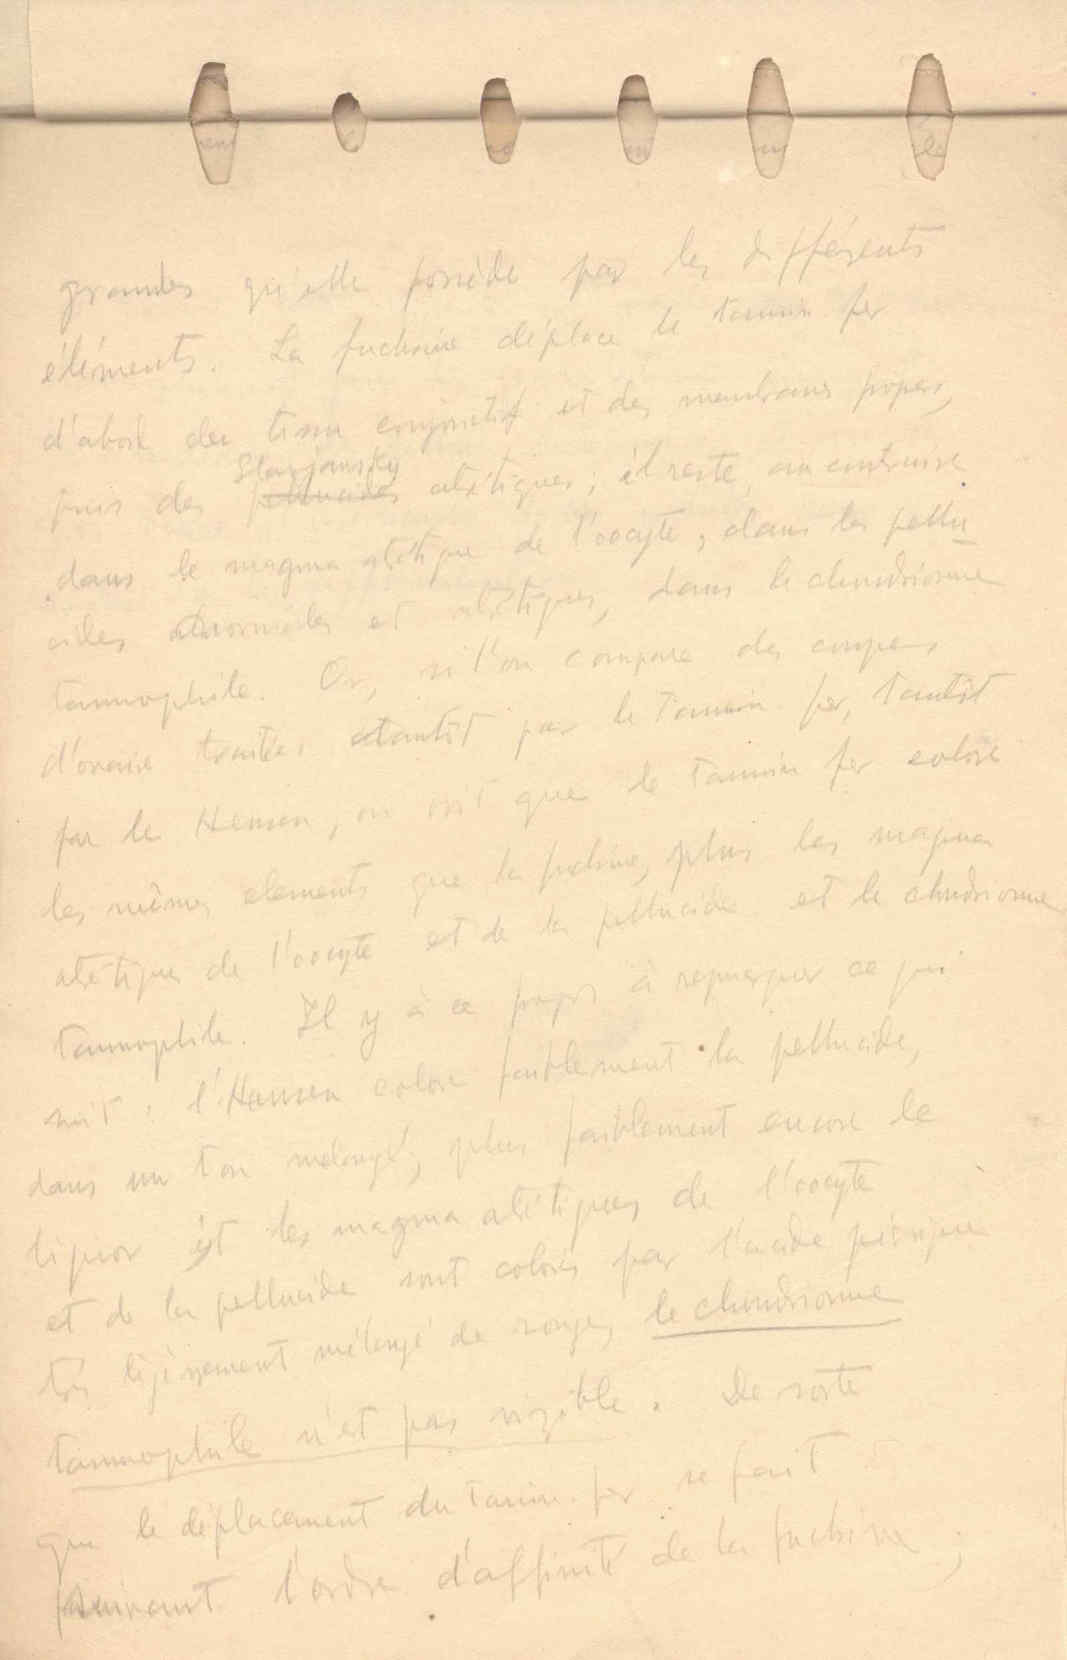 grandes qu'elle possède par les différents
éléments. La fuchsine déplace le tannin fer
d'abord des tissu conjonctif et des membranes propres,
Slavjansky
puis des pellucides atrétiques; il reste, au contraire
dans le magma atrétique de l'oocyte, dans les pellu
cides anormales et atrétiques, dans le chondriome
tannophile. Or, si l'on compare des coupes
d'ovaire traitées tantôt par le tannin fer, tantôt
par le Hansen, on voit que le tannin fer colore
les mêmes elements que la fuchsine, plus les magma
atrétiques de l'oocyte et de la pellucide et le chondriome
tannophile. Il y à ce propos à remarquer ce qui
suit : l'Hansen colore faiblement la pellucide,
dans un ton mélangé, plus faiblement encore le
liquor et les magma atrétiques de l'oocyte
et de la pellucide sont colorés par l'acide picrique
très légèrement mélangé de rouge, le chondriome
tannophile n'est pas visible. De sorte
que le déplacement du tannin fer se fait
suivant l'ordre d'affinité de la fuchsine ;